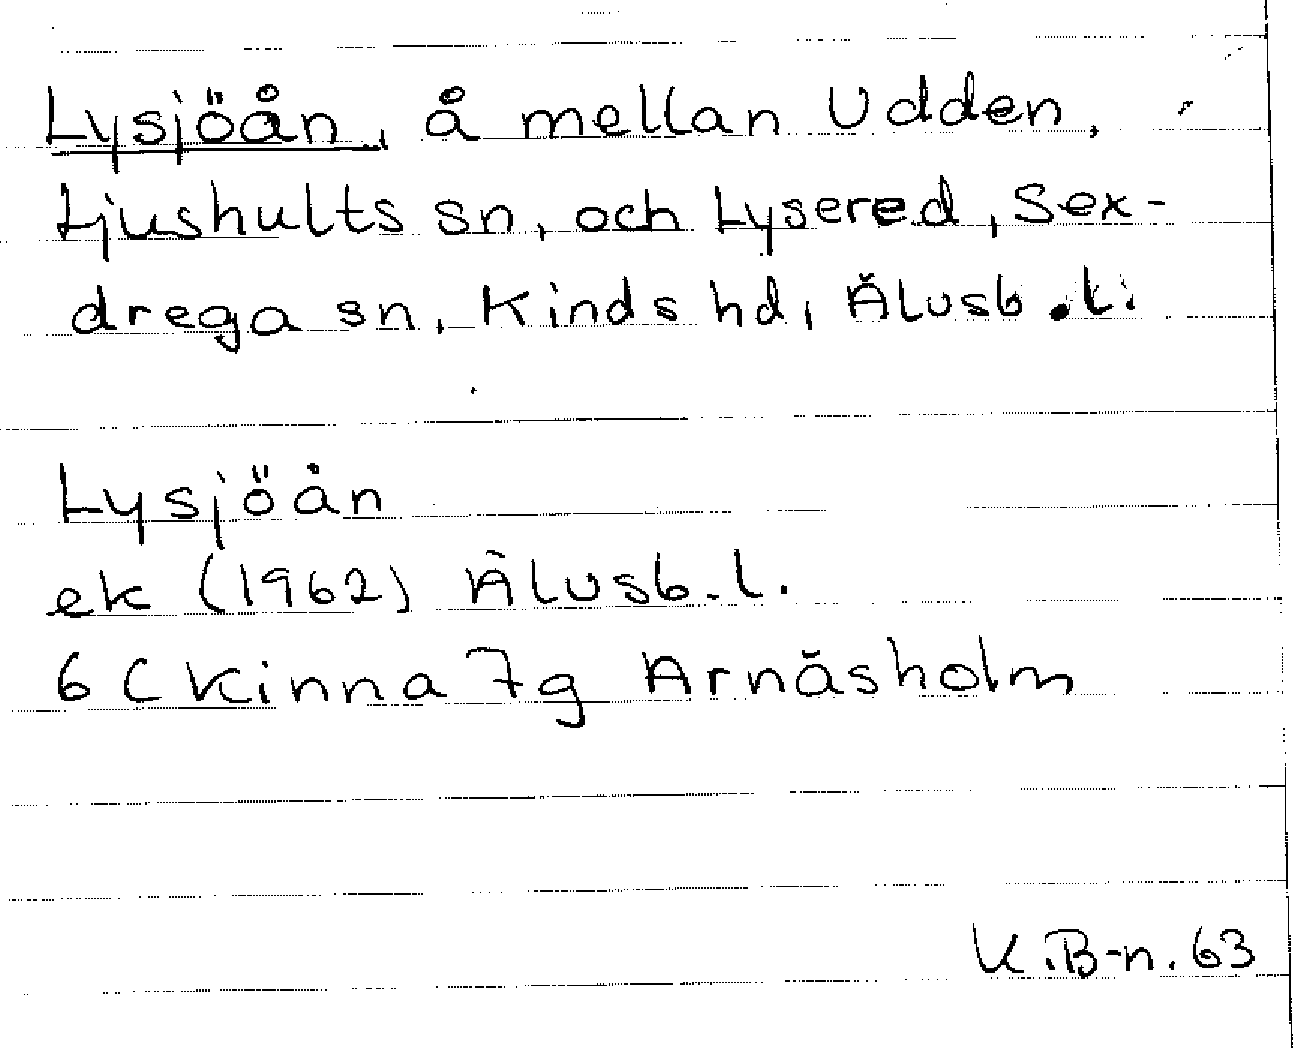 Lysjöån, å mellan Udden,
Ljushults sn, och Lysered, Sex-
drega sn, Kinds hd, Älvsb.l.
Lysjöån
ek (1962) Älvsb.l.
6 C Kinna 7g Arnåsholm
K.B-n.63